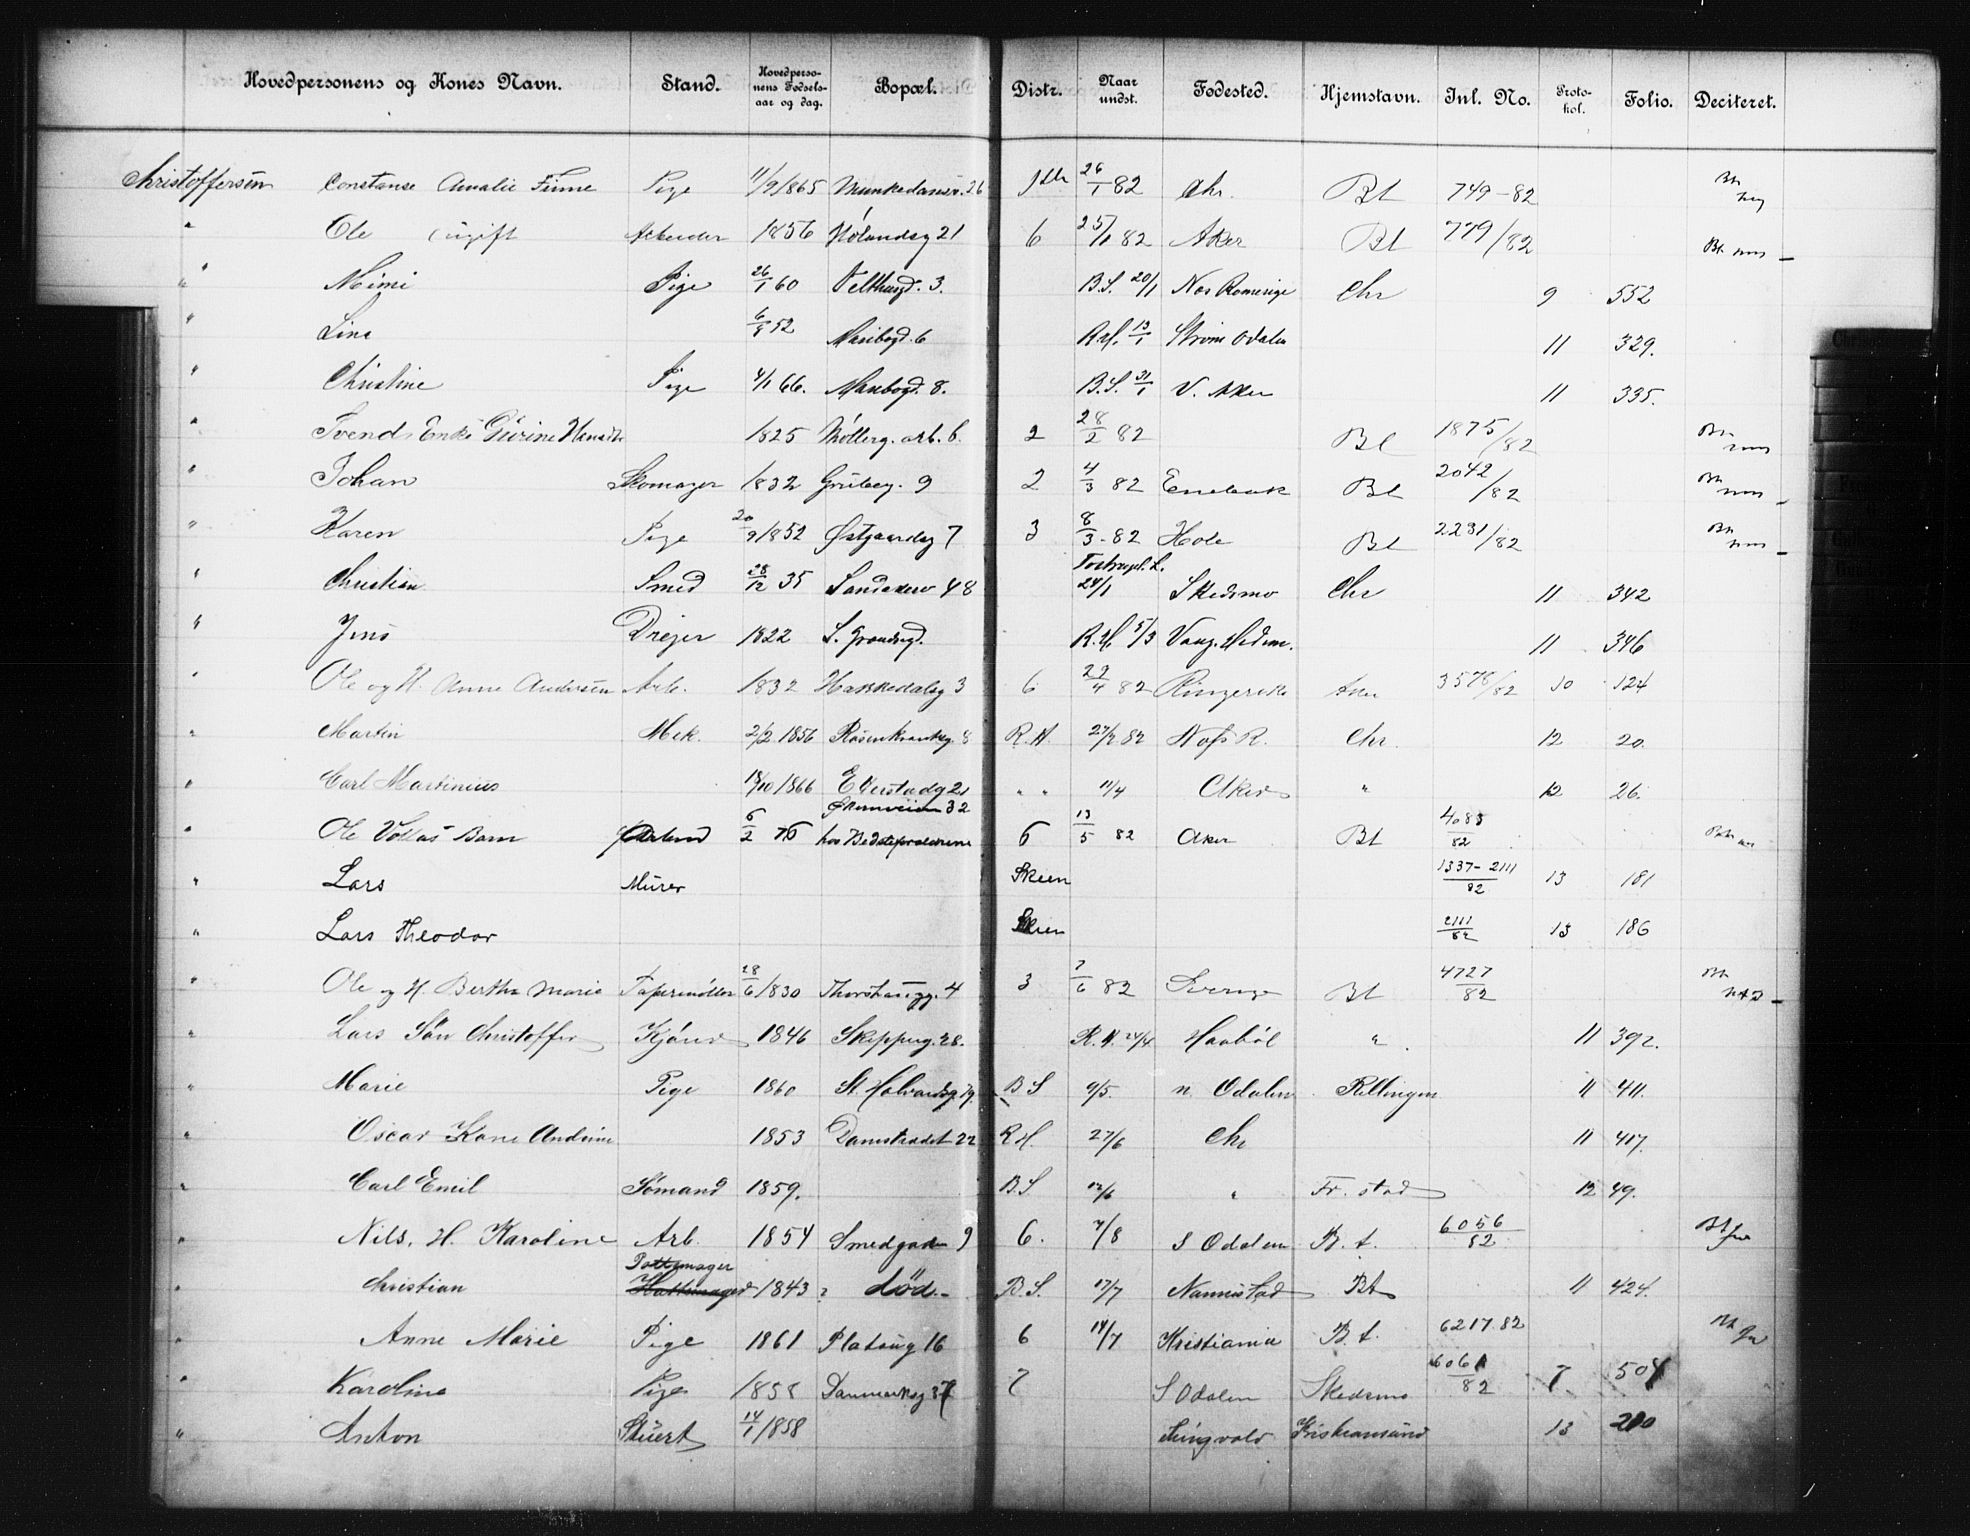 Hovedpersonens og Kones Navn. Stand. Hovedperso-nens Fødsels-aar og dag. Bopæl. Distr. Naar undst. Fødested. Hjemstavn. Inl. No. Proto-kol. Folio. Deciteret.
Christoffersen Constanse Amalie Finne Pige 11/9 1865 Munkedamsv. 26 26/1 82 Chr. Bt 749-82
" Ole ugift Arbeider 1856 21 6 25/1 82 Aker Bt 779/82
" Mimi Pige 26/1 60 3. B.S. 20/1 Nes Romerige Chr 9 552
" Lina 6/5 52 Maribog. 6 R.H. 13/1 Odalen 11 329.
" Christine Pige 4/1 66. Maribog. 8. B.S. 31/1 V. Aker 11 335.
" Svends Enke Gurine 1825 Møllerg. arb. 6. 2 28/2 82 Bt 1875/82
" Johan Skomager 1832 Grüberg. 9 2 4/3 82 Enebak Bt 2042/82
" Karen Pige 20/9 1852 Østgaardsg 7 3 8/3 - 82 Hole Bt 2231/82
" Christian Smed 28/12 35 Sandakerv 48 24/1 Skedsmo Chr 11 342
" Jens Drejer 1822 R.H. 5/3 Vang. Hedm. 11 346
" Ole og H. Anne Andersen Arb. 1832 Hakkedalsg 3 6 29/4 82 Ringerike Aker 3578/82 10 124
" Martin Mek. 2/2 1856 Rosenkrantsg. 8 R.H. 27/2 82 Næs R. Chr. 12 20.
" Carl Martinius 18/10 1866 21 " " 11/4 Aker " 12 26.
" Ole Barn 6/2 76 32 hos Bedsteforældrene 6 13/5 82 Aker Bt 4083/82
" Lars Murer Skien 1337-2111/82 13 181
" Lars Theodor Skien 2111/82 13 186
" Ole og H. Bertha Marie Papirmøller 28/6 1830 Thorshaugg. 4 3 7/6 82 Sverige Bt 4727/82
" Lars Søn Christoffer Kjører 1846 Skipperg. 28. R.H. 24/4 Haabøl " 11 392.
" Marie Pige 1860 St. Halvardsg. 19. B S 9/5. n Odalen Rellingen 11 411.
" Oscar Kone Andrine 1853 Damstrædet 22 R H. 27/6 Chr 11 417.
" Carl Emil Sømand 1859. B.S 12/6 " Fr. stad 12 49.
" Nils, H. Karoline Arb. 1854 Smedgaden 9 6. 7/8 S Odalen B. t. 6056/82
" Christian Pottemager Hattemager 1843 død. B.S. 17/7 Nannestad Bt 11 424.
" Anne Marie Pige 1861 Platoug 16 6 14/7 Kristiania B. t. 6217. 82
" Karoline Pige 1858 Danmarksg 37 7 S Odalen Skedsmo 6061/82 7 504
" Anton Stuert 14/1 1858 Tingvold Kristiansund 13 210